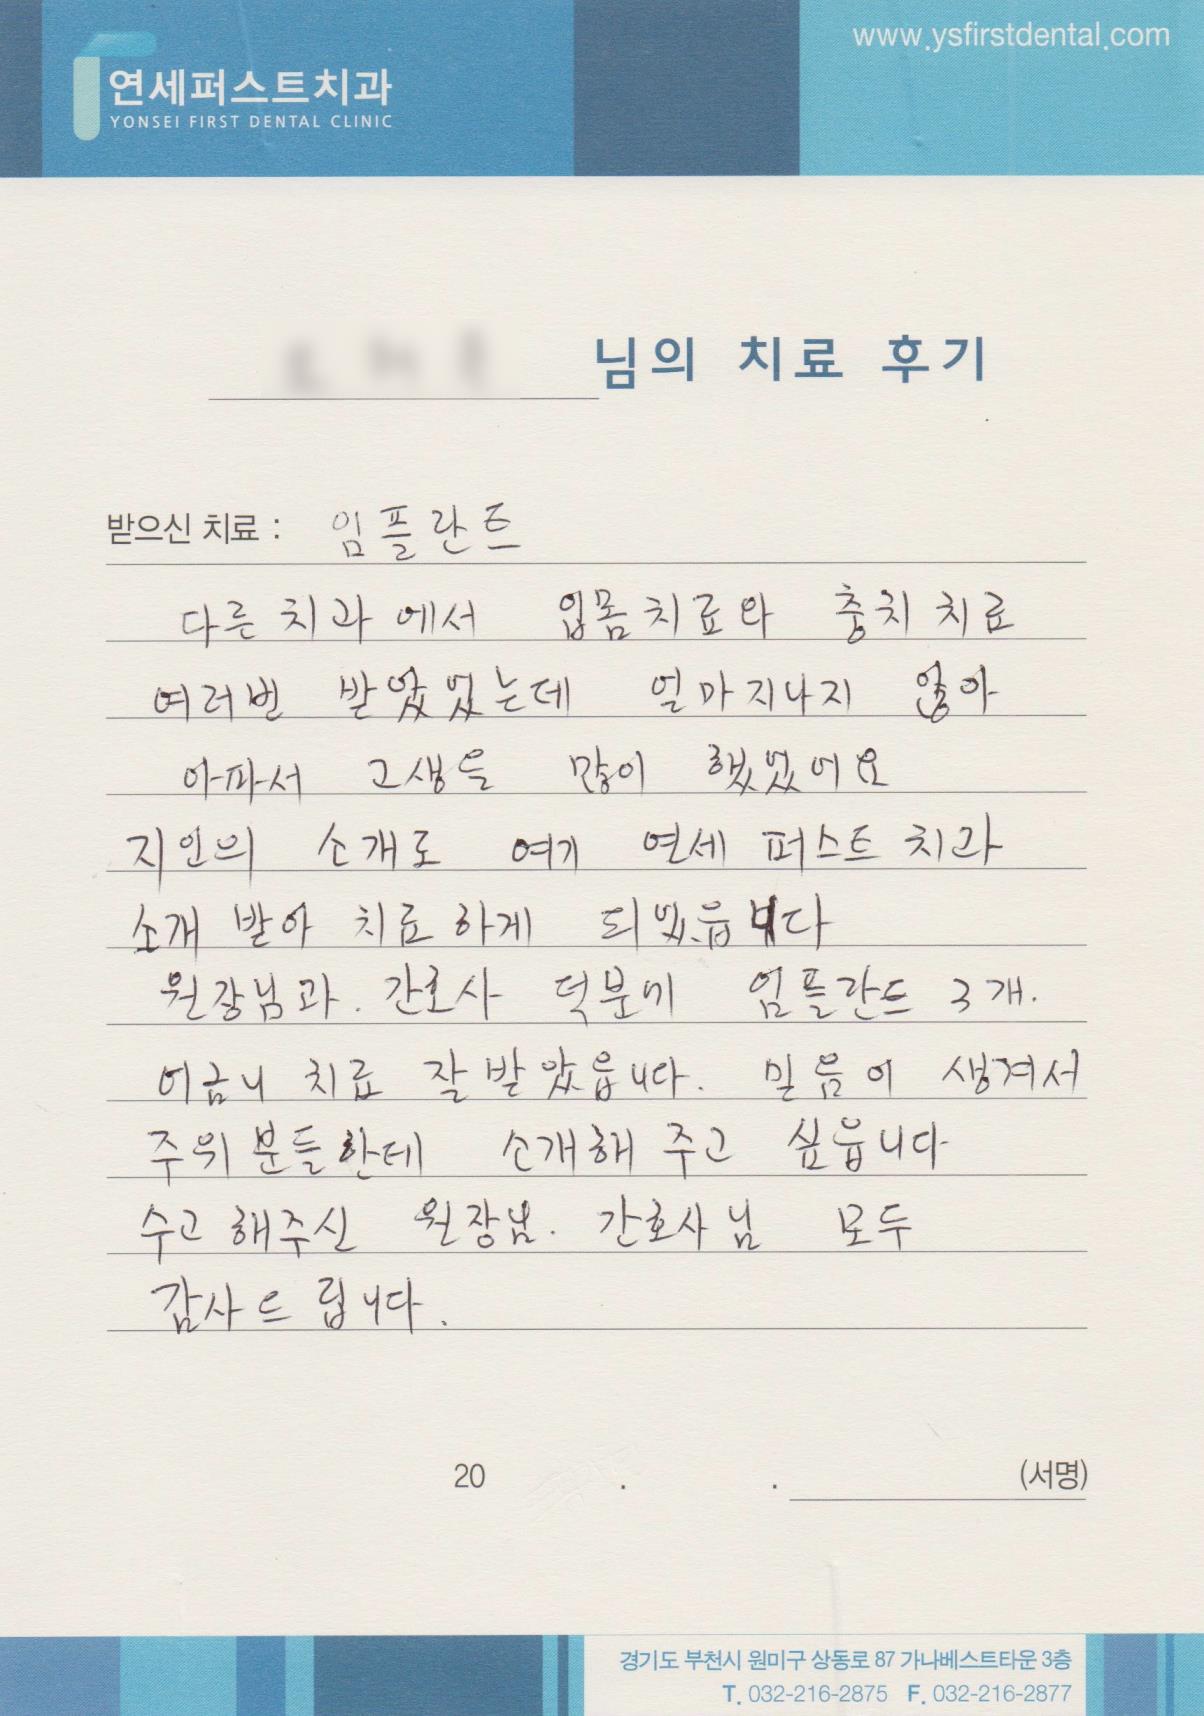 www.ysfirstdental.com
연세퍼스트치과
YONSEI FIRST DENTAL CLINIC
님의 치료 후기
받으신 치료 : 임플란트
다른 치과에서 입몸치료와 충치 치료
여러번 받았었는데 얼마지나지 않아
아파서 고생을 많이 했었어요
지인의 소개로 여기 연세 퍼스트 치과
소개 받아 치료하게 되었읍니다
원장님과. 간호사 덕분에 임플란트 3개.
어금니 치료 잘 받았읍니다. 믿음이 생겨서
주위분들한테 소개해 주고 싶읍니다
수고 해주신 원장님. 간호사님 모두
감사드립니다.
20 . . (서명)
경기도 부천시 원미구 상동로 87 가나베스트타운 3층
T. 032-216-2875 F. 032-216-2877